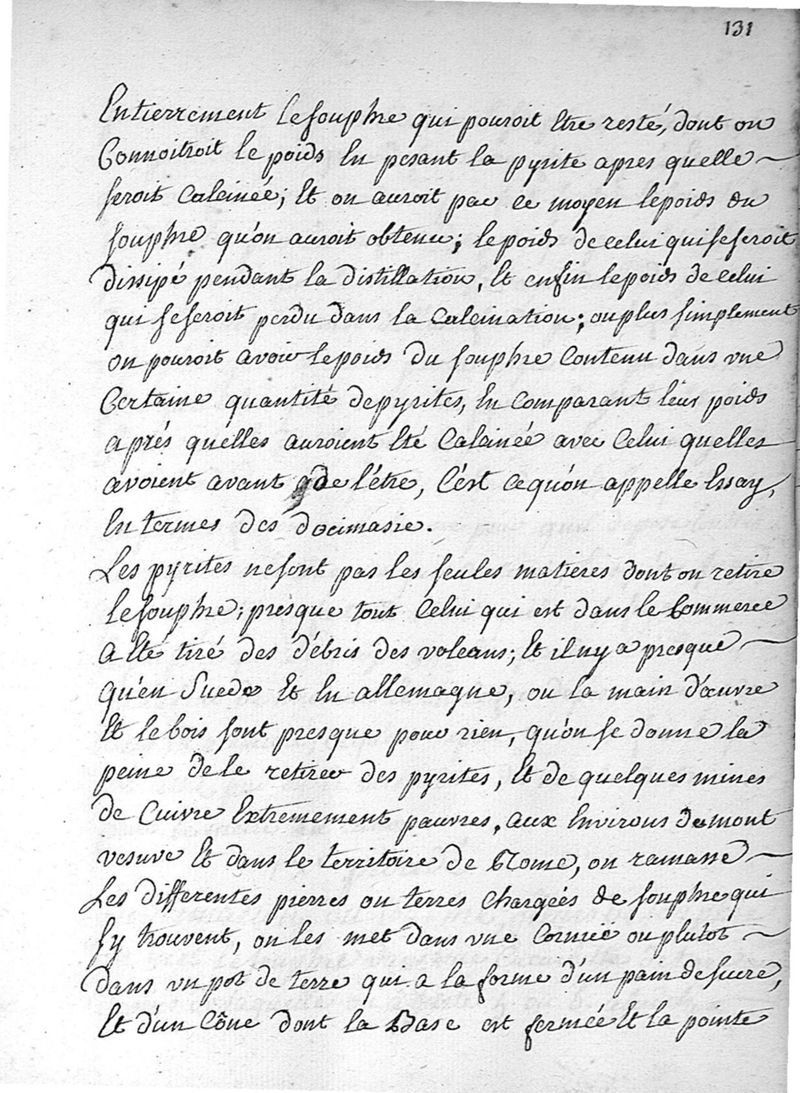 131
Entierrement le souphre qui pouroit Etre resté, dont on
Connoitroit le poids En pesant la pyrite apres quelle
seroit Calcinée; Et on auroit par ce moyen le poids du
souphre qu'on auroit obtenu; le poids de celui qui se seroit
dissipé pendant la distillation, Et enfin le poids de celui
qui se seroit perdu dans la Calcination; ou plus simplement
on pouroit avoir le poids du souphre Contenu dans une
Certaine quantité de pyrites, En comparant leur poids
aprés quelles auroient Eté Calcinée avec Celui quelles
avoient avant de l'étre, C'est ce qu'on appelle Essay,
En termes des docimasie.
Les pyrites ne sont pas les seules matieres dont on retire
le souphre; presque tout Celui qui est dans le Commerce
a Eté tiré des débris des volcans; Et il ny a presque
qu'en Suede Et En allemagne, ou la main d'œuvre
Et le bois sont presque pour rien, qu'on se donne la
peine de le retirer des pyrites, Et de quelques mines
de Cuivre Extremement pauvres, aux Environs du mont
vesuve Et dans le territoire de Rome, on ramasse
Les differentes pierres ou terres chargées de souphre qui
s'y trouvent, on les met dans une Cornue ou plutot
dans un pot de terre qui a la forme d'un pain de sucre,
Et d'un Cône dont la Base est fermée Et la pointe